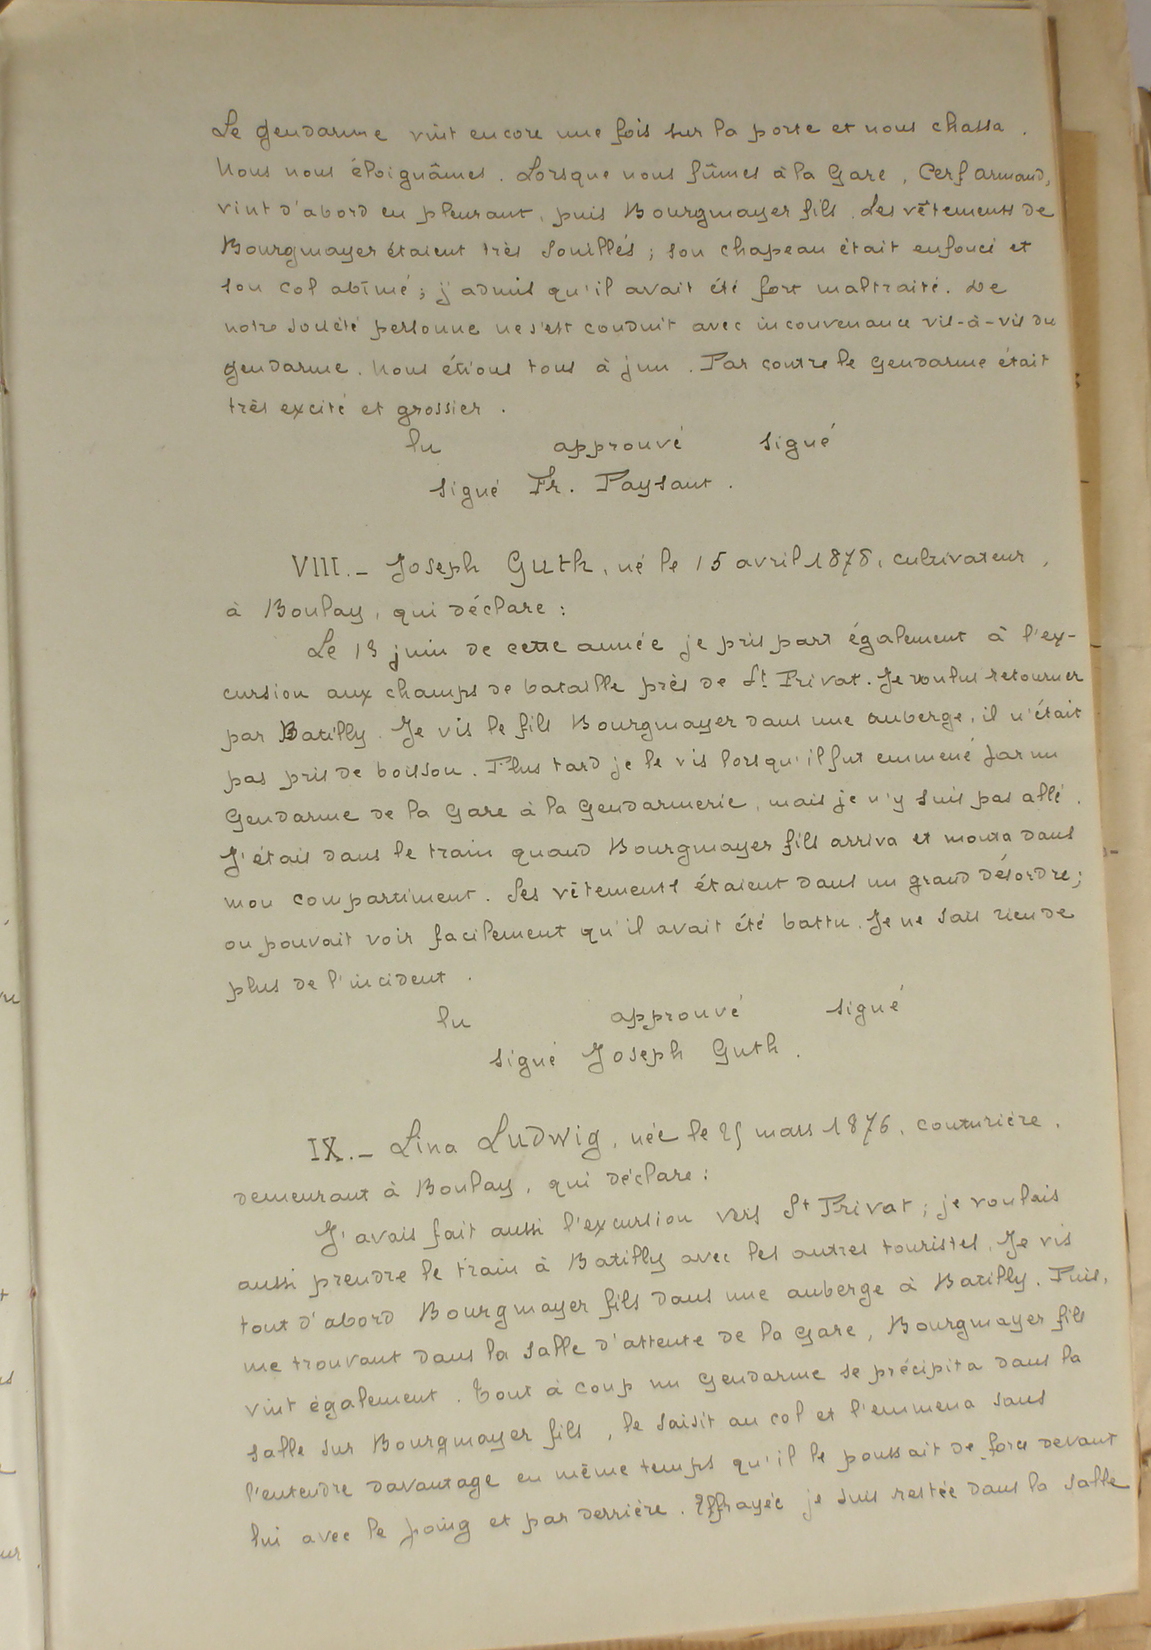 Le gendarme vint encore une fois sur la porte et nous chassa.
Nous nous éloignâmes. Lorsque nous fûmes à la Gare, Cerf Armand,
vint d'abord en pleurant, puis Bourgmayer fils. Les vêtements de
Bourgmayer étaient très souillés; son chapeau était enfoncé et
son col abîmé; j'admis qu'il avait été fort maltraité. De
notre société personne ne s'est conduit avec inconvenance vis-à-vis du
gendarme. Nous étions tous à jun. Par contre le gendarme était
très excité et grossier.
lu approuvé signé
signé Fr. Paysant.
VIII.- Joseph Guth, né le 15 avril 1878, cultivateur,
à Boulay, qui déclare:
Le 13 juin de cette année je pris part également à l'ex-
cursion aux champs de bataille près de St Privat. Je voulus retourner
par Batilly. Je vis le fils Bourgmayer dans une auberge, il n'était
pas pris de boisson. Plus tard je le vis lorsqu'il fut emmené par un
Gendarme de la Gare à la Gendarmerie, mais je n'y suis pas allé.
J'étais dans le train quand Bourgmayer fils arriva et monta dans
mon compartiment. Ses vêtements étaient dans un grand désordre;
on pouvait voir facilement qu'il avait été battu. Je ne sais rien de
plus de l'incident.
lu approuvé signé
signé Joseph Guth.
IX.- Lina Ludwig, née le 25 mars 1876, couturière,
demeurant à Boulay, qui déclare:
J'avais fait aussi l'excursion vers St Privat; je voulais
aussi prendre le train à Batilly avec les autres touristes. Je vis
tout d'abord Bourgmayer fils dans une auberge à Batilly. Puis,
me trouvant dans la salle d'attente de la gare, Bourgmayer fils
vint également. Tout à coup un gendarme se précipita dans la
salle sur Bourgmayer fils, le saisit au col et l'emmena sans
l'entendre davantage en même temps qu'il le poussait de force devant
lui avec le poing et par derrière. Effrayée je suis restée dans la salle